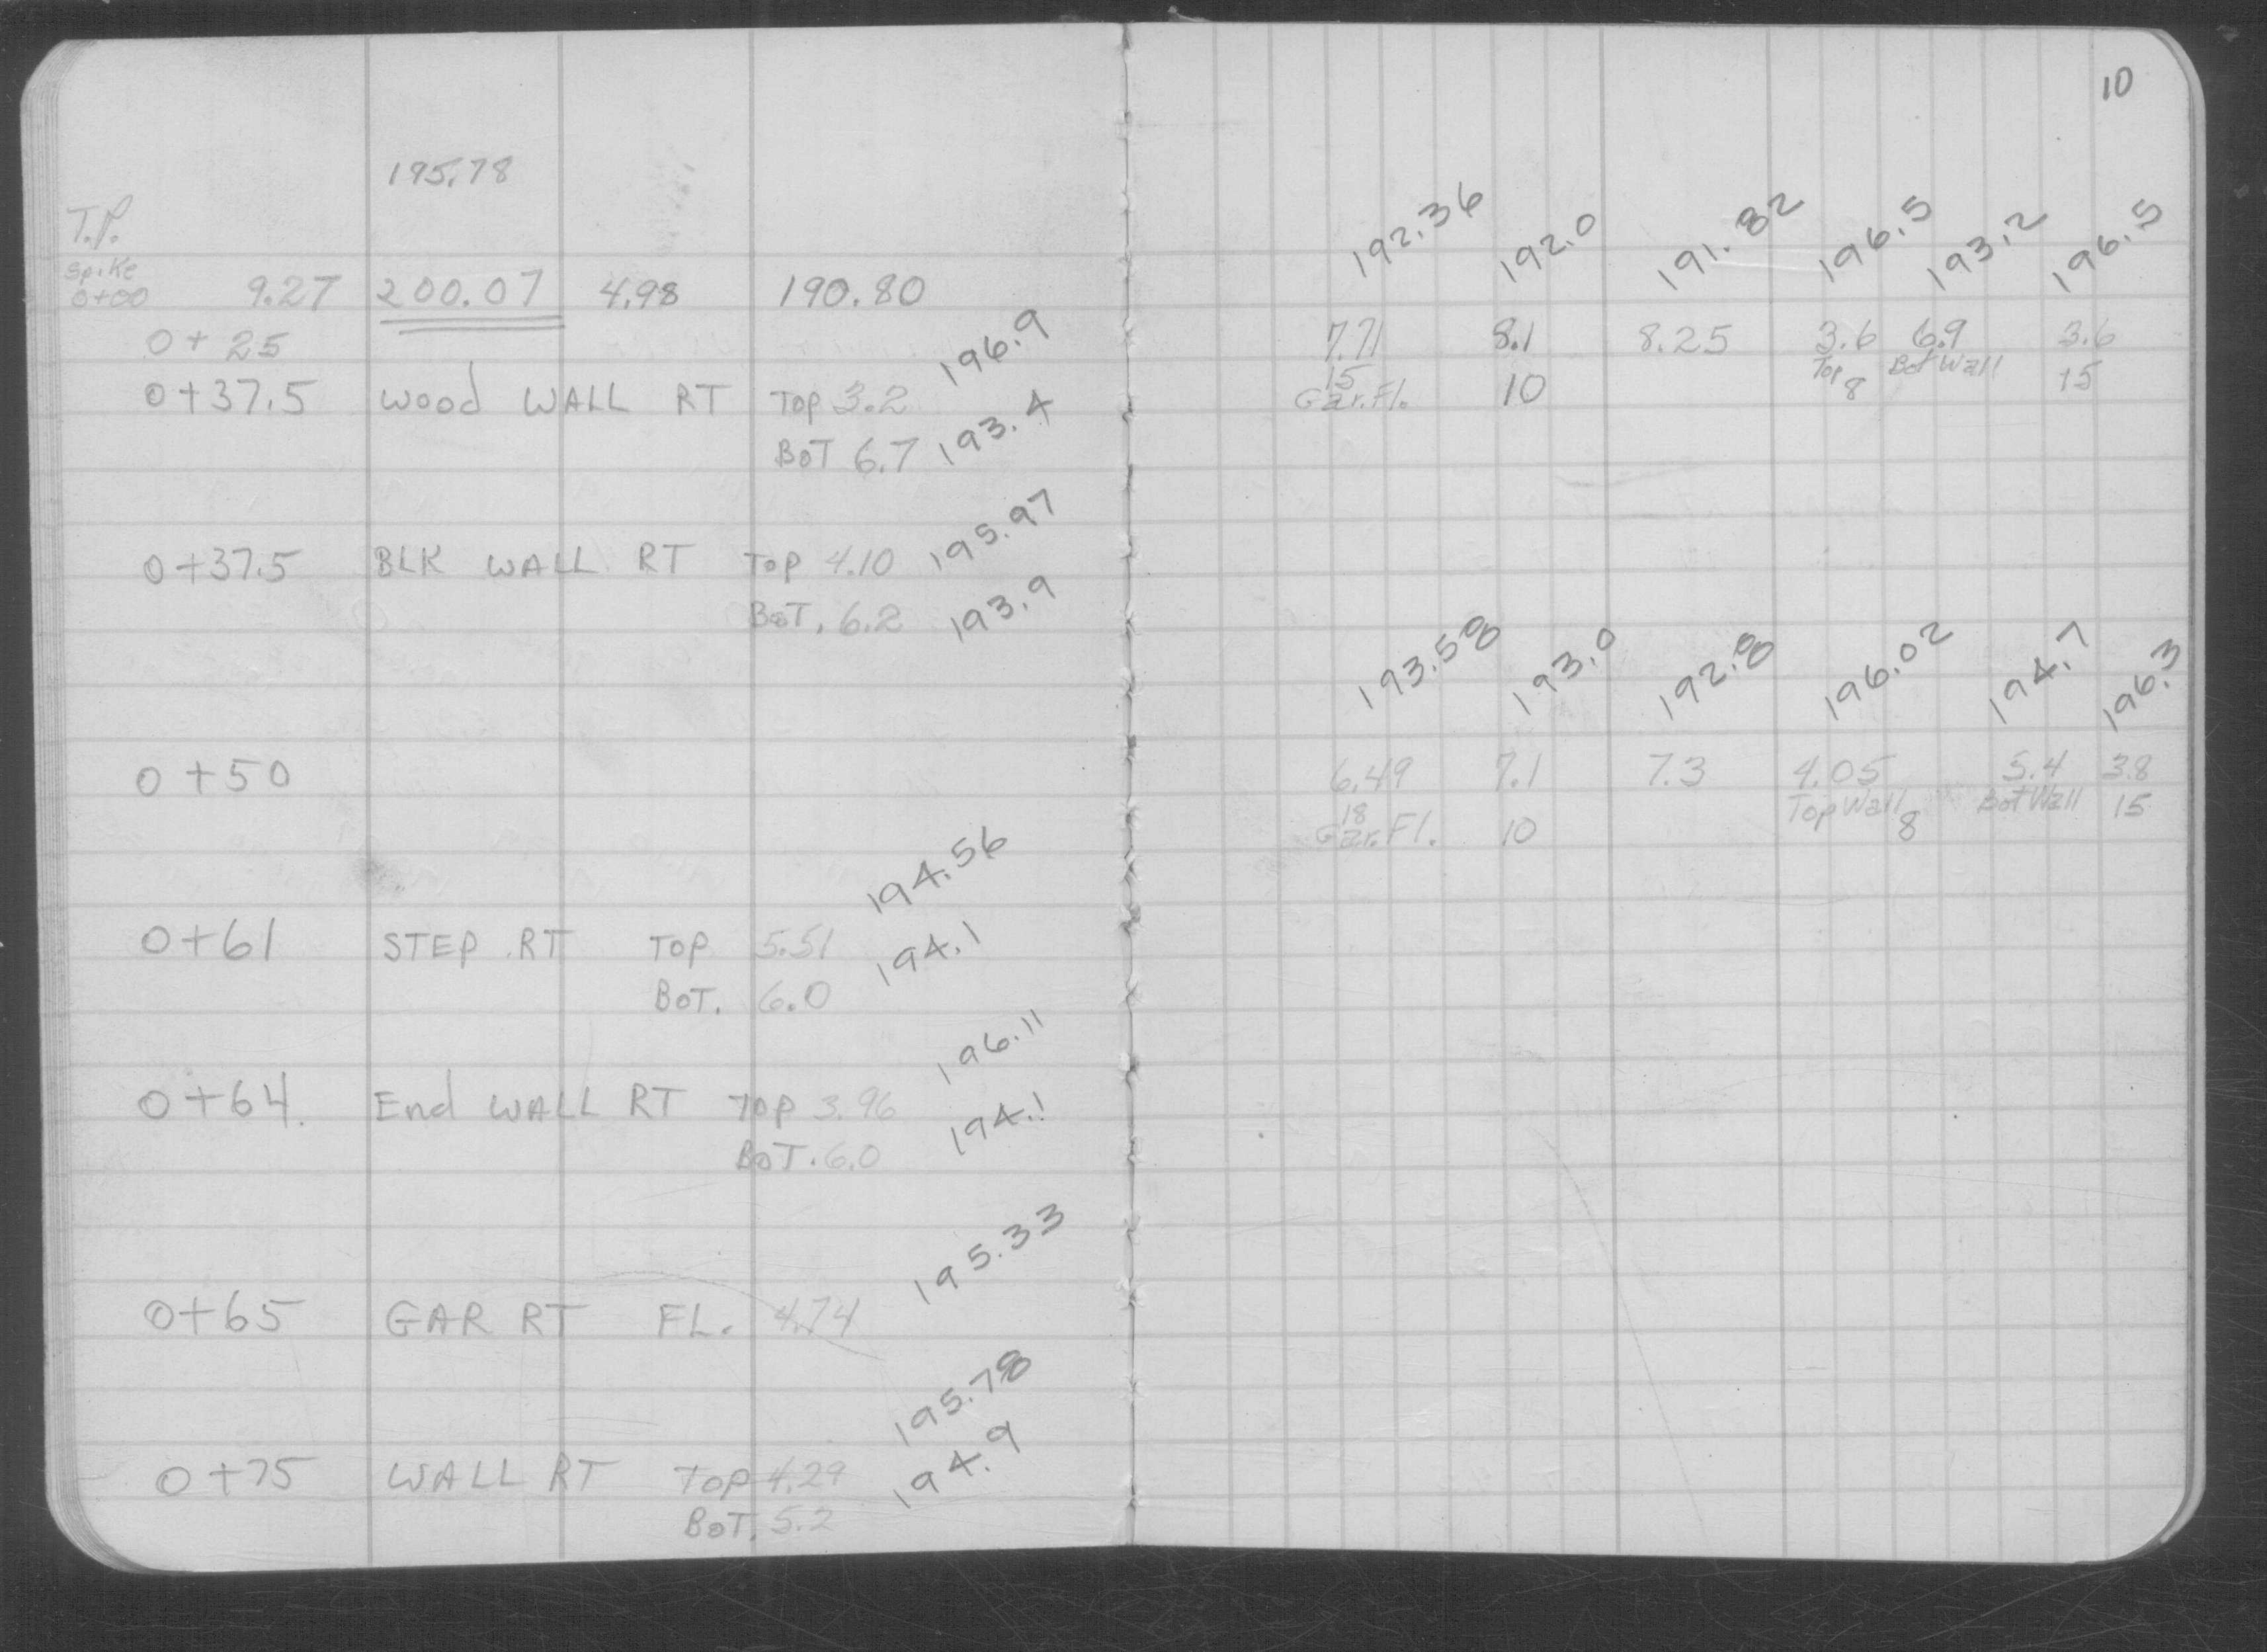 10
195.78
T.P.
Spike
0+00 9.27 200.07 4.98 190.80
0+25
196.9
0+37.5 Wood WALL RT Top 3.2
193.4
BOT 6.7
195.97
0+37.5 BLK WALL RT Top 4.10
193.9
BOT. 6.2
0+50
194.56
0+61 STEP RT TOP 5.51
194.1
BOT. 6.0
196.11
0+64 End WALL RT TOP 3.96
194.1
BOT. 6.0
195.33
0+65 GAR RT FL. 4.74
195.78
0+75 WALL RT TOP 4.29
194.9
BOT. 5.2
192.36 192.0 191.82 196.5 193.2 196.5
7.71 8.1 8.25 3.6 6.9 3.6
15 10 Top 8 Bot Wall 15
Gar. Fl.
193.58 193.0 192.8 196.02 194.7 196.3
6.49 7.1 7.3 4.05 5.4 3.8
18 10 Top Wall 8 Bot Wall 15
Gar. Fl.